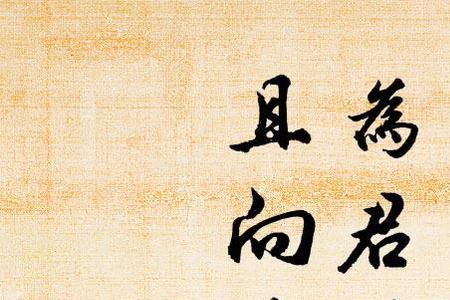 為君
且向